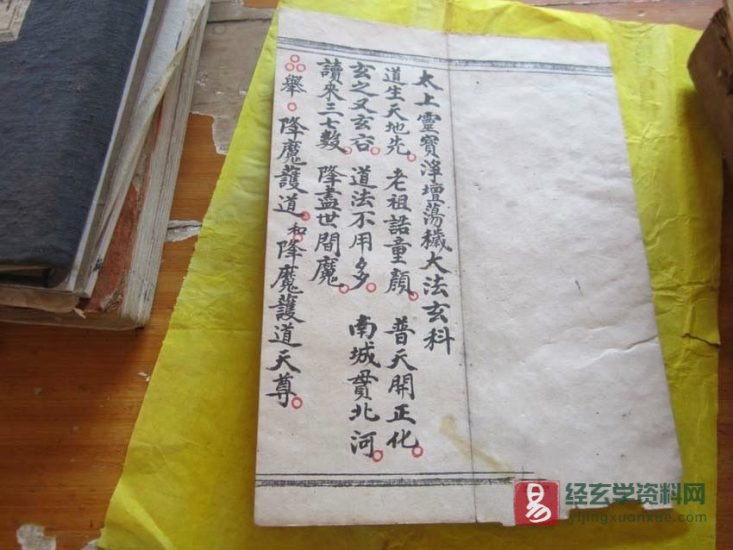 太上靈寶淨壇蕩穢大法玄科
道生天地先 老祖話童顏 普天開正化
玄之又玄谷 道法不用多 南城貫北河
讀來三七數 降盡世間魔
舉 降魔護道 和降魔護道天尊
易
经玄学资料网
yijingxuanxue.com